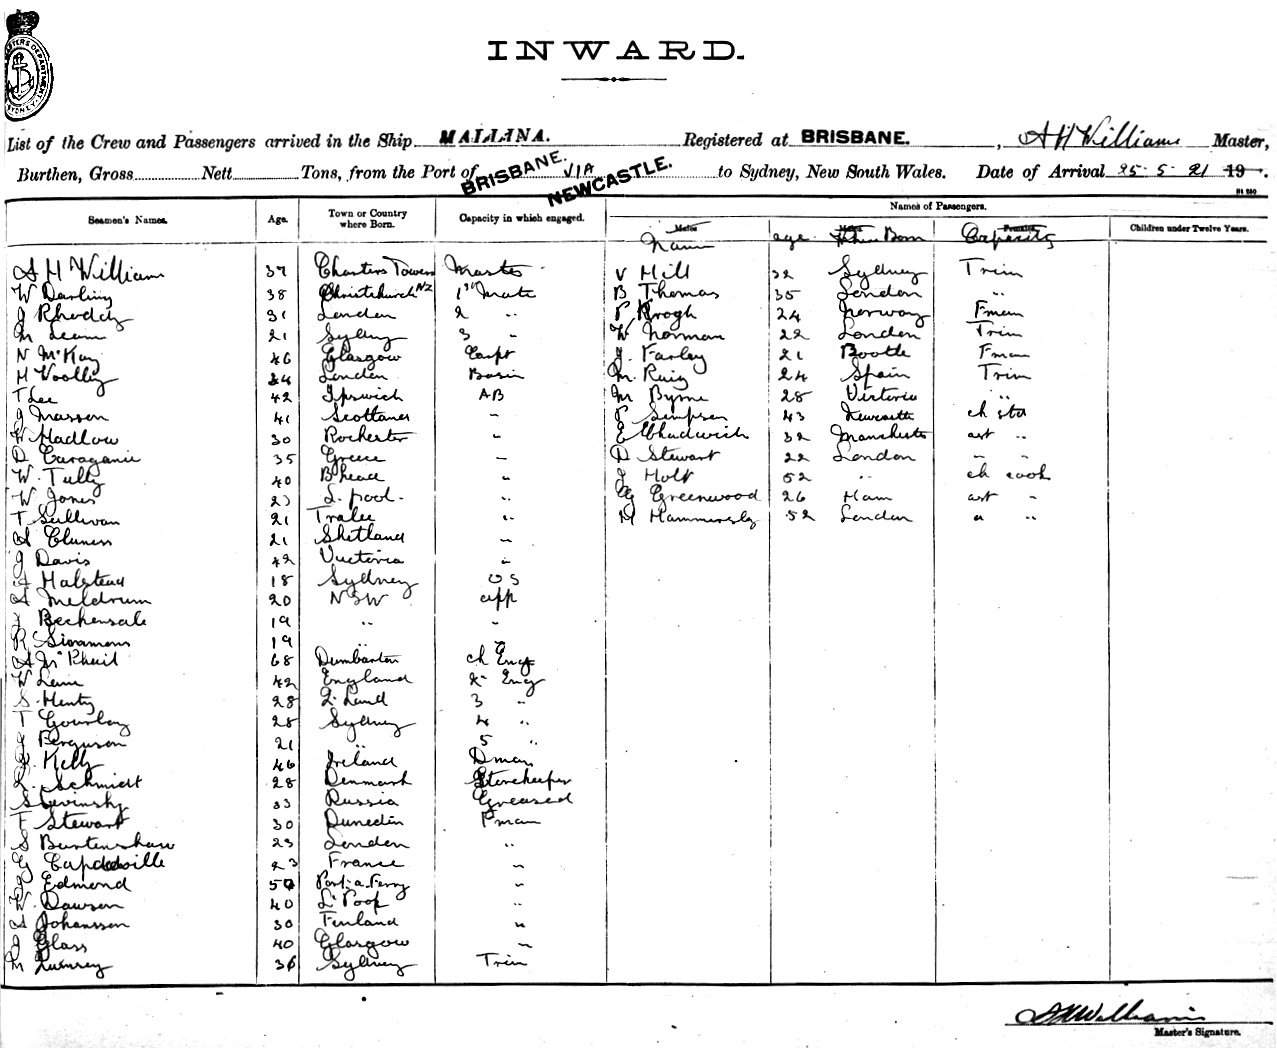 INWARD.
List of the Crew and Passengers arrived in the Ship MALLINA. Registered at BRISBANE. , A H Williams Master,
Burthen, Gross Nett Tons, from the Port of BRISBANE. VIA NEWCASTLE. to Sydney, New South Wales. Date of Arrival 25-5-21 19 .
Seamen's Names. Age. Town or Country where Born. Capacity in which engaged. Names of Passengers.
Males Females Children under Twelve Years.
Name age Where Born Capacity
A H William 37 Charters Towers Master V Hill 32 Sydney Trim
W Darling 38 Christchurch NZ 1st Mate B Thomas 35 London "
J Rhoddy 31 London 2 " P Krogh 24 Norway Fman
M Leam 21 Sydney 3 " W Norman 22 London Trim
N McKay 46 Glasgow Carpt J. Farley 21 Bootle Fman
H Woolley 24 London Bosin M. Ruiz 24 Spain Trim
T Lee 42 Ipswich AB M Byrne 28 Victoria "
J Masson 41 Scotland " P Simpson 43 Newcastle ch std
W Hadlow 30 Rochester " E Chadwick 32 Manchester ast "
D Caraganis 35 Greece " D Stewart 22 London " "
W. Tully 40 B'head " J Holt 52 " ch cook
W Jones 23 L. pool. " G Greenwood 26 Ham ast "
T Sullivan 21 Tralee " H Hammersly 52 London a "
A Cluness 21 Shetland "
J Davis 42 Victoria "
A Halstead 18 Sydney OS
A Meldrum 20 NSW app
J Beckensale 19 " "
R Simmons 19 "
A McPhail 68 Dumbarton ch Eng
W Lew 42 England 2" Eng
S. Henty 28 Q. Land 3 "
T Gourlay 28 Sydney 4 "
J Ferguson 21 " 5 "
J. Kelly 46 Ireland Dman
L. Schmidt 28 Denmark Storekeeper
Slevinsky 33 Russia Greased
F Stewart 30 Dunedin Fman
S Burtenshaw 23 London "
G Capdeville 23 France "
J Edmond 50 Port-a-Ferry "
W. Dawson 40 L'Pool "
A Johansson 30 Finland "
J Glass 40 Glasgow "
M 36 Sydney Trim
A H Williams
Master's Signature.